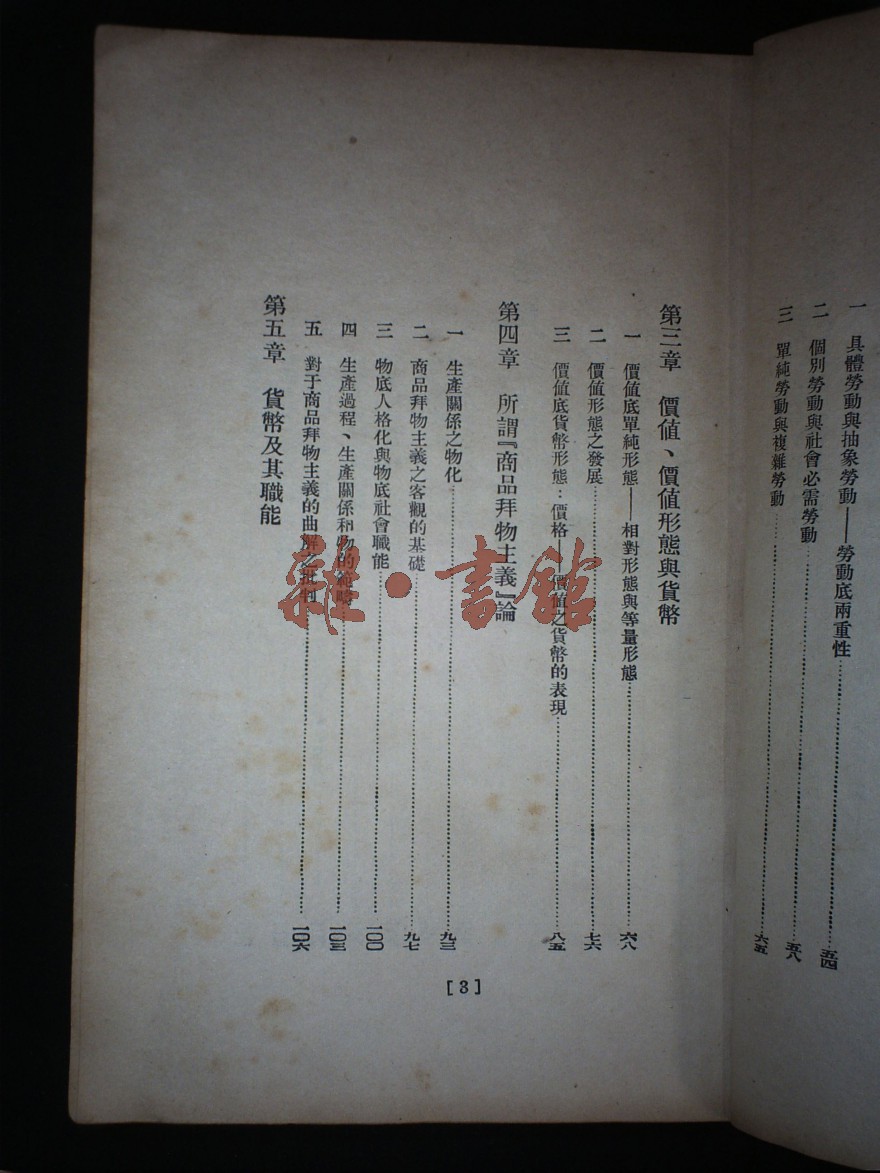 一　具體勞動與抽象勞動——勞動底兩重性……五四
二　個別勞動與社會必需勞動……五八
三　單純勞動與複雜勞動……六五
第三章　價值、價值形態與貨幣
一　價值底單純形態——相對形態與等量形態……六八
二　價值形態之發展……七六
三　價值底貨幣形態：價格——價值之貨幣的表現……八五
第四章　所謂『商品拜物主義』論
一　生產關係之物化……九三
二　商品拜物主義之客觀的基礎……九七
三　物底人格化與物底社會職能……一〇〇
四　生產過程、生產關係和物的範疇……一〇三
五　對于商品拜物主義的曲解之批判……一〇六
第五章　貨幣及其職能
[3]
雜·書館